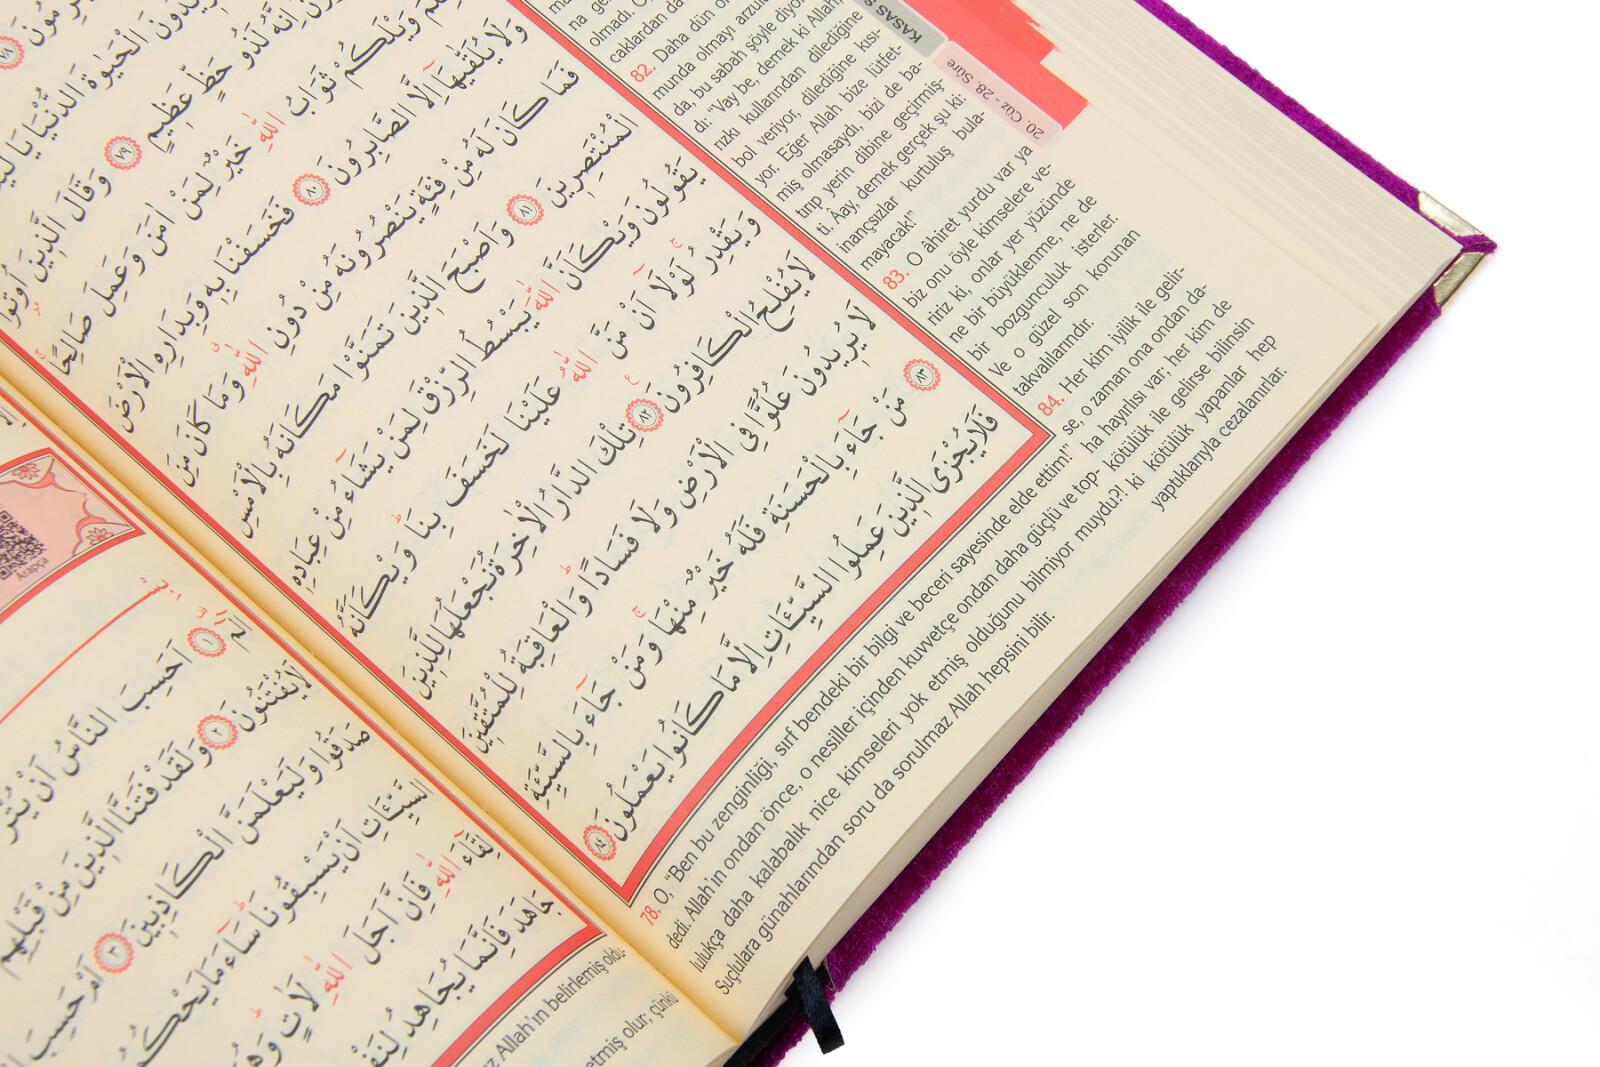 الْحَيٰوةَ الدُّنْيَا يَا
لَذُو حَظٍّ عَظِيمٍ ﴿٧٩﴾ وَقَالَ الَّذِينَ اُوتُوا
وَيْلَكُمْ ثَوَابُ اللّٰهِ خَيْرٌ لِمَنْ اٰمَنَ وَعَمِلَ صَالِحًا
وَلَا يُلَقّٰيهَٓا اِلَّا الصَّابِرُونَ ﴿٨٠﴾ فَخَسَفْنَا بِهِ وَبِدَارِهِ الْاَرْضَ
فَمَا كَانَ لَهُ مِنْ فِئَةٍ يَنْصُرُونَهُ مِنْ دُونِ اللّٰهِ وَمَا كَانَ مِنَ
الْمُنْتَصِرِينَ ﴿٨١﴾ وَاَصْبَحَ الَّذِينَ تَمَنَّوْا مَكَانَهُ بِالْاَمْسِ
يَقُولُونَ وَيْكَاَنَّ اللّٰهَ يَبْسُطُ الرِّزْقَ لِمَنْ يَشَٓاءُ مِنْ عِبَادِهِ
وَيَقْدِرُ لَوْلَٓا اَنْ مَنَّ اللّٰهُ عَلَيْنَا لَخَسَفَ بِنَا وَيْكَاَنَّهُ
لَا يُفْلِحُ الْكَافِرُونَ ﴿٨٢﴾ تِلْكَ الدَّارُ الْاٰخِرَةُ نَجْعَلُهَا لِلَّذِينَ
لَا يُرِيدُونَ عُلُوًّا فِي الْاَرْضِ وَلَا فَسَادًا وَالْعَاقِبَةُ لِلْمُتَّقِينَ
﴿٨٣﴾ مَنْ جَٓاءَ بِالْحَسَنَةِ فَلَهُ خَيْرٌ مِنْهَا وَمَنْ جَٓاءَ بِالسَّيِّئَةِ
فَلَا يُجْزَى الَّذِينَ عَمِلُوا السَّيِّـَٔاتِ اِلَّا مَا كَانُوا يَعْمَلُونَ ﴿٨٤﴾
KASAS S
20. Cüz - 28. Sûre
olmadı.
caklardan da
82. Daha dün o
munda olmayı arzula
da, bu sabah şöyle diyo
di: "Vay be, demek ki Allah
rızkı kullarından dilediğine
bol veriyor, dilediğine kısı-
yor. Eğer Allah bize lütfet-
miş olmasaydı, bizi de ba-
tırıp yerin dibine geçirmiş-
ti. Âay, demek gerçek şu ki:
inançsızlar kurtuluş bula-
mayacak!"
83. O âhiret yurdu var ya
biz onu öyle kimselere ve-
ririz ki, onlar yer yüzünde
ne bir büyüklenme, ne de
bir bozgunculuk isterler.
Ve o güzel son korunan
takvalılarındır.
84. Her kim iyilik ile gelir-
se, o zaman ona ondan da-
ha hayırlısı var; her kim de
kötülük ile gelirse bilinsin
ki kötülük yapanlar hep
yaptıklarıyla cezalanırlar.
78. O, "Ben bu zenginliği, sırf bendeki bir bilgi ve beceri sayesinde elde ettim!"
dedi. Allah'ın ondan önce, o nesiller içinden kuvvetçe ondan daha güçlü ve top-
lulukça daha kalabalık nice kimseleri yok etmiş olduğunu bilmiyor muydu?!
Suçlulara günahlarından soru da sorulmaz Allah hepsini bilir.
Arapça
الٓمٓ ﴿١﴾ اَحَسِبَ النَّاسُ اَنْ
لَا يُفْتَنُونَ ﴿٢﴾ وَلَقَدْ فَتَنَّا الَّذِينَ مِنْ قَبْلِهِمْ
صَدَقُوا وَلَيَعْلَمَنَّ الْكَاذِبِينَ ﴿٣﴾ اَمْ حَسِبَ
السَّيِّـَٔاتِ اَنْ يَسْبِقُونَا سَٓاءَ مَا
لِقَٓاءَ اللّٰهِ فَاِنَّ اَجَلَ اللّٰهِ لَاٰتٍ
جَاهَدَ فَاِنَّمَا يُجَاهِدُ
Allah'ın belirlemiş oldu-
etmiş olur; çünkü